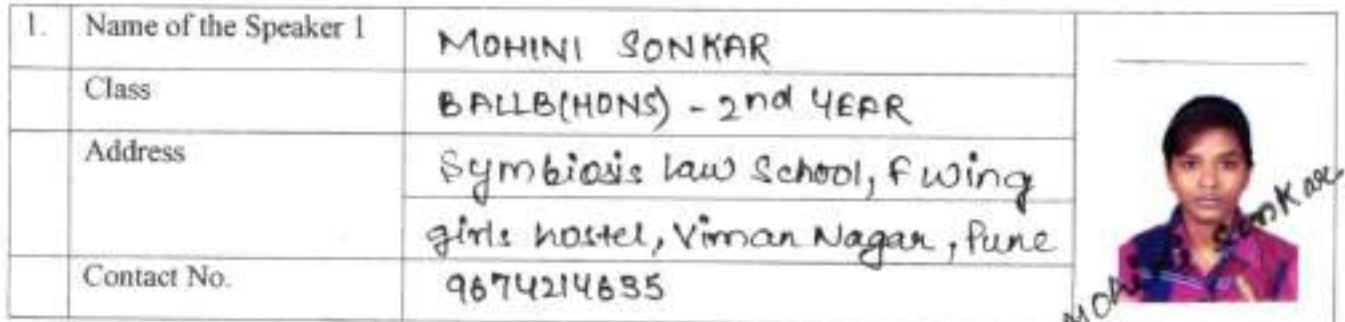 1. Name of the Speaker 1 MOHINI SONKAR
Class BALLB(HONS) - 2nd YEAR
Address Symbiosis Law School, F wing
girls hostel, Viman Nagar, Pune
Contact No. 9674214635
Mohini Sonkar